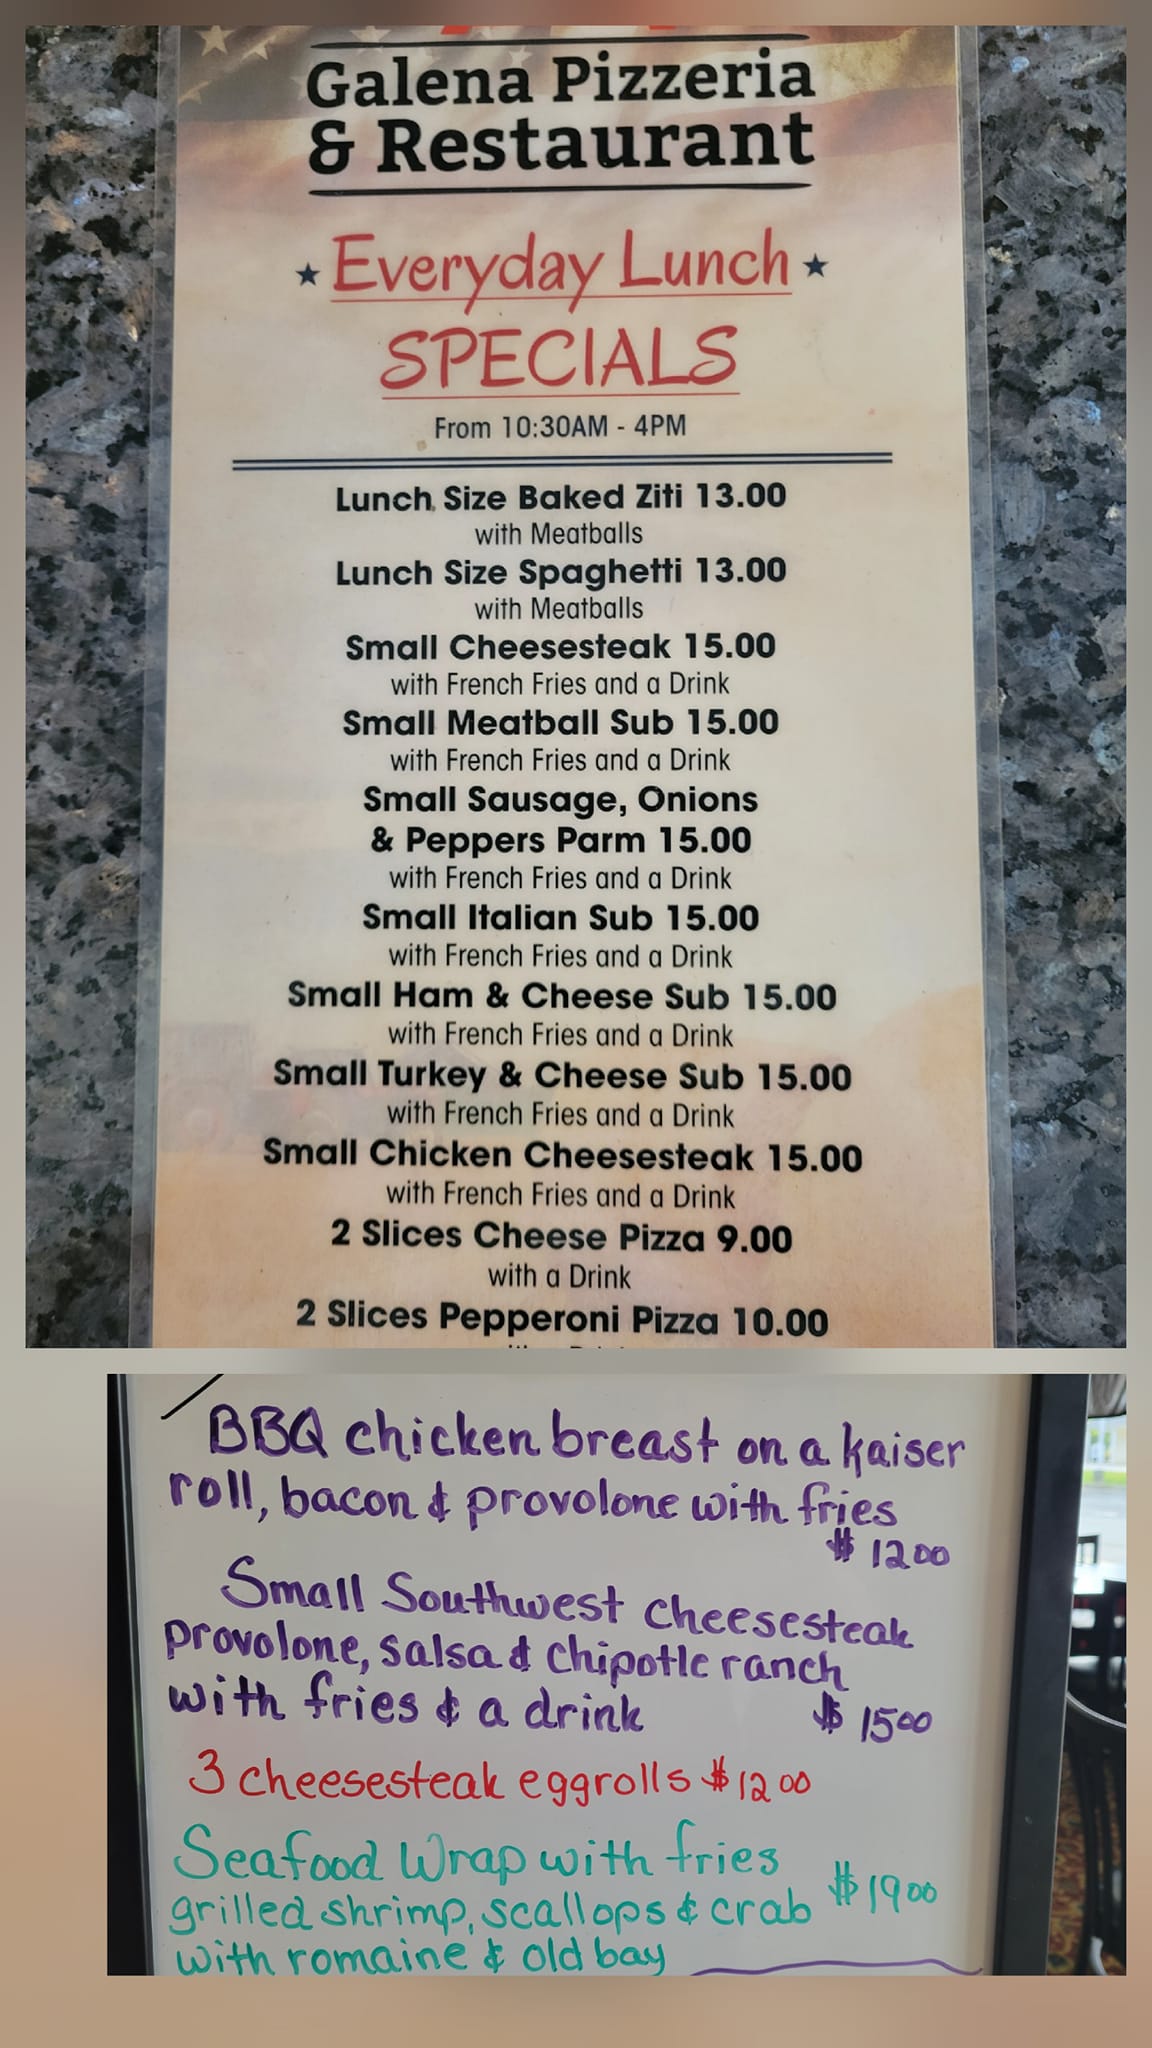 Galena Pizzeria
& Restaurant
Everyday Lunch
SPECIALS
From 10:30AM - 4PM
Lunch Size Baked Ziti 13.00
with Meatballs
Lunch Size Spaghetti 13.00
with Meatballs
Small Cheesesteak 15.00
with French Fries and a Drink
Small Meatball Sub 15.00
with French Fries and a Drink
Small Sausage, Onions
& Peppers Parm 15.00
with French Fries and a Drink
Small Italian Sub 15.00
with French Fries and a Drink
Small Ham & Cheese Sub 15.00
with French Fries and a Drink
Small Turkey & Cheese Sub 15.00
with French Fries and a Drink
Small Chicken Cheesesteak 15.00
with French Fries and a Drink
2 Slices Cheese Pizza 9.00
with a Drink
2 Slices Pepperoni Pizza 10.00
BBQ chicken breast on a kaiser
roll, bacon & provolone with fries
$ 12 00
Small Southwest cheesesteak
provolone, salsa & chipotle ranch
with fries & a drink $ 15 00
3 cheesesteak eggrolls $ 12 00
Seafood Wrap with fries
grilled shrimp, scallops & crab $ 19 00
with romaine & old bay